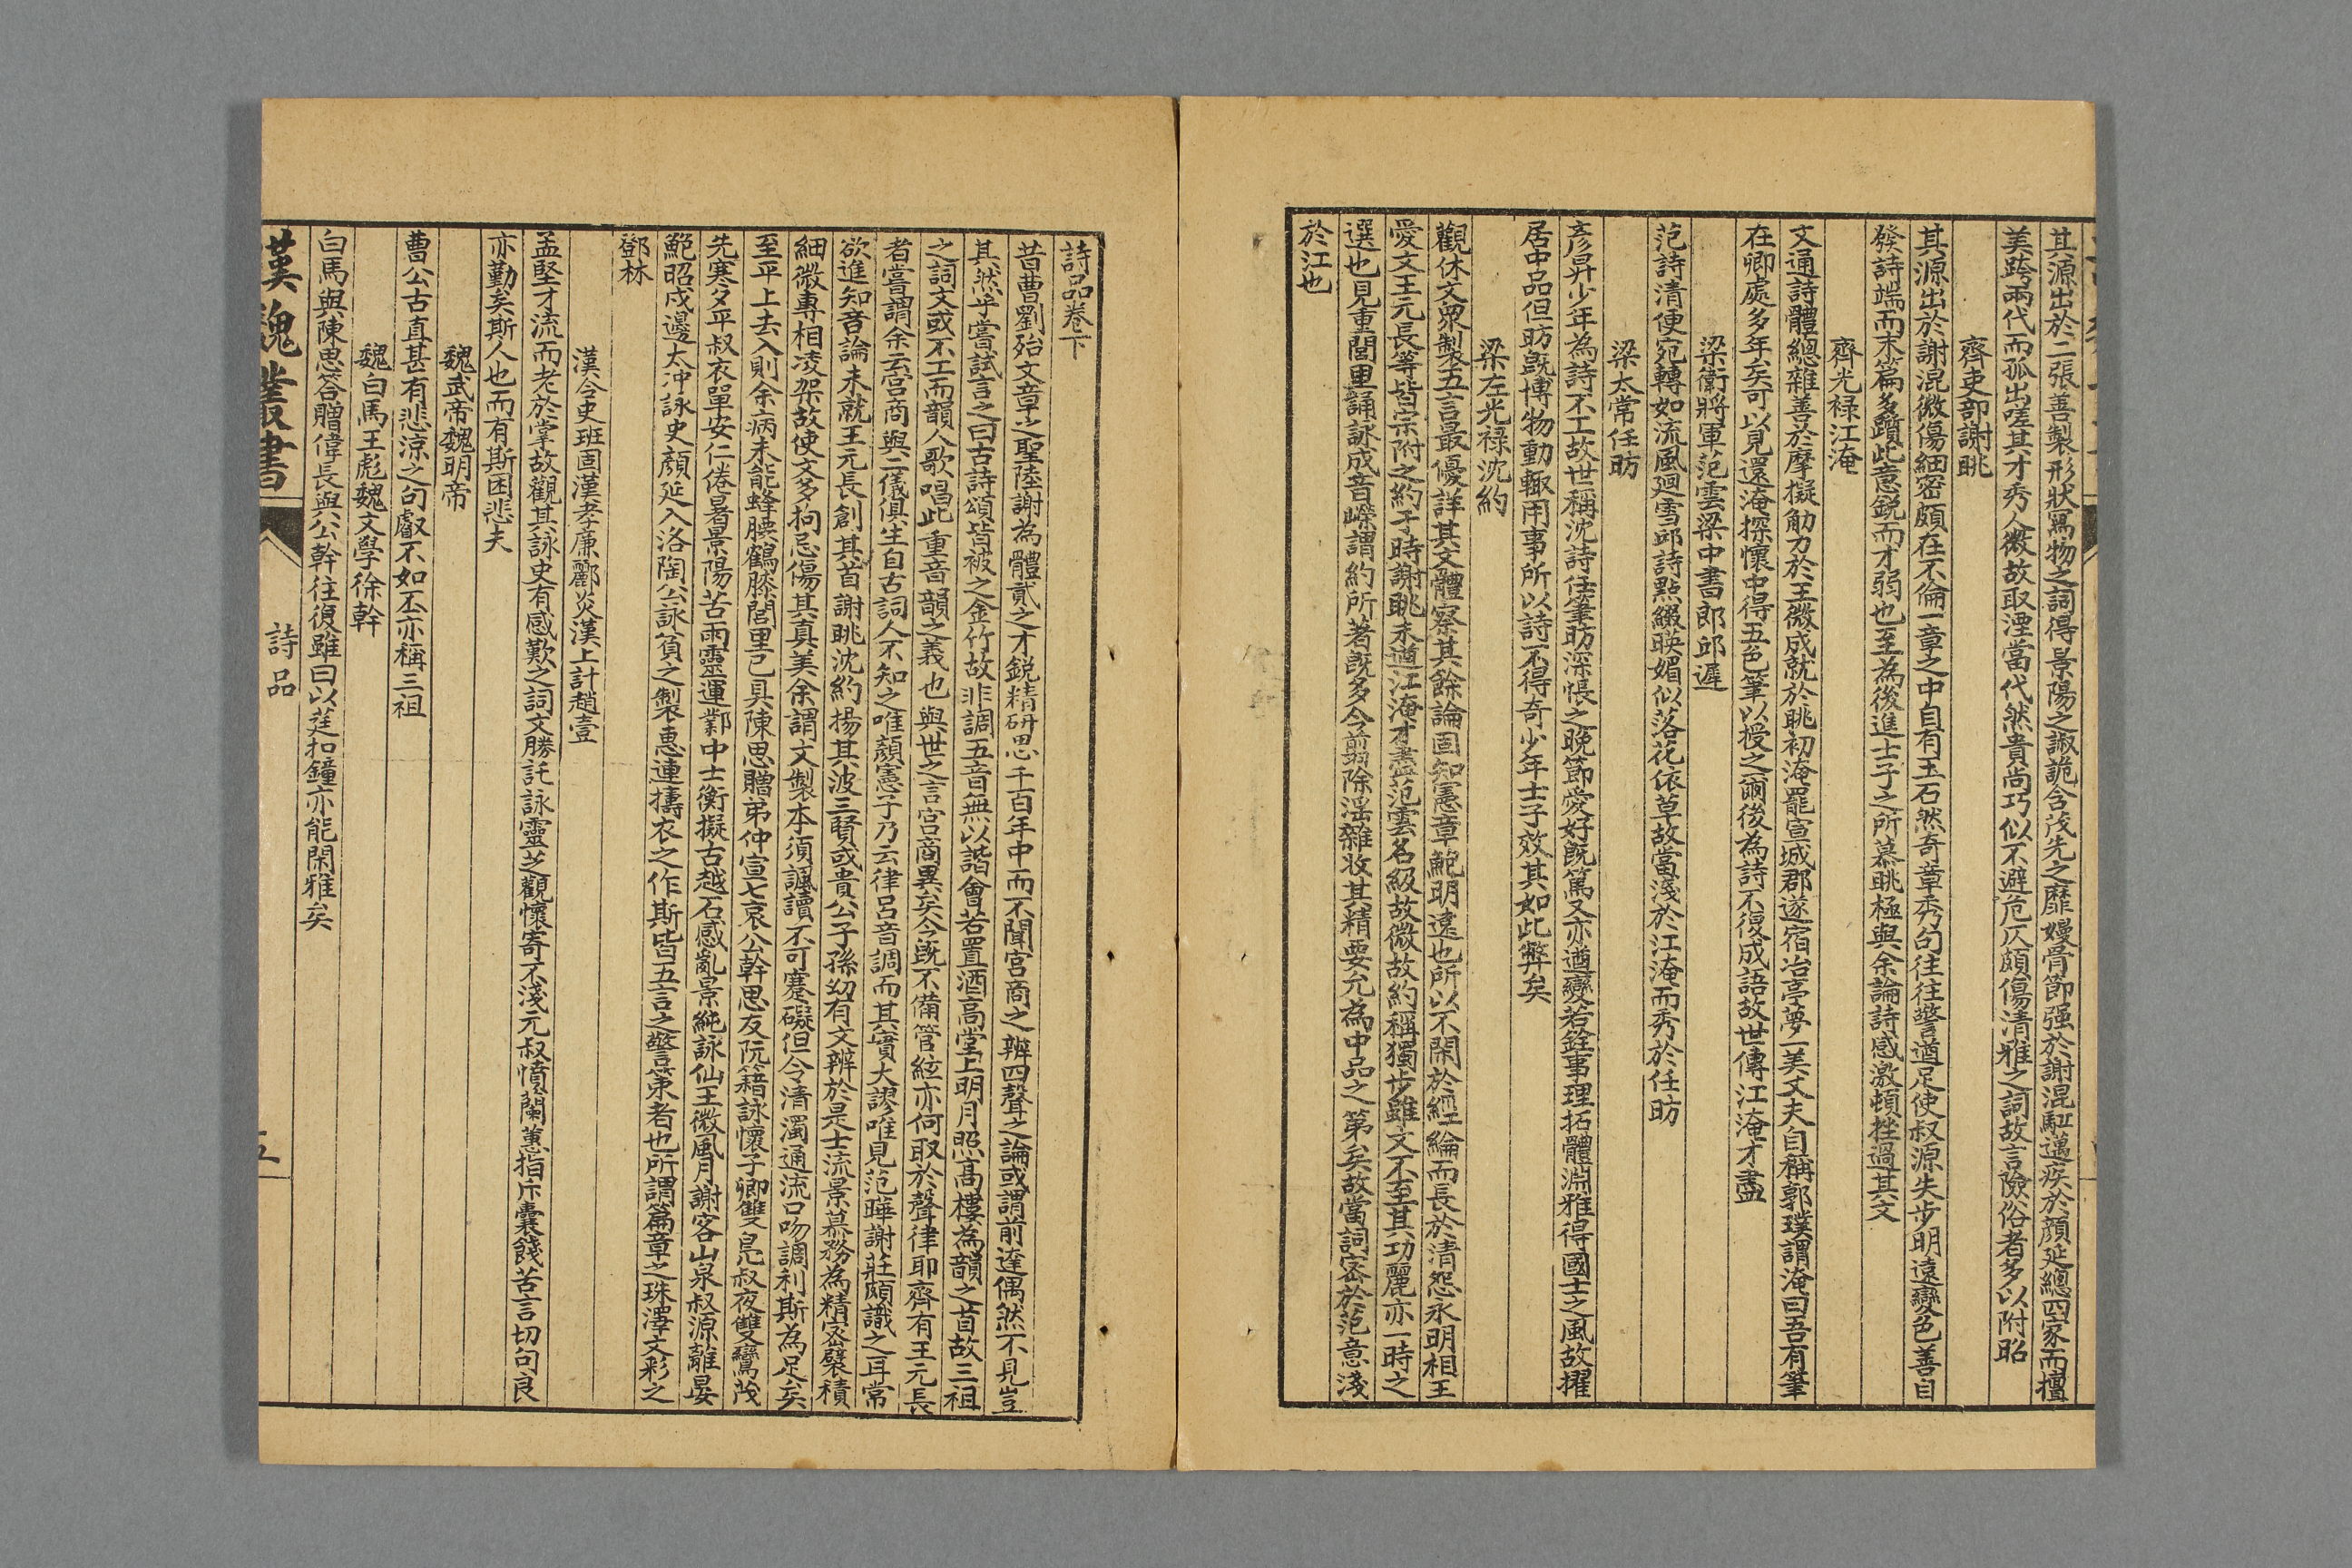 其源出於二張善製形狀寫物之詞得景陽之諔詭含茂先之靡嫚骨節强於謝混駈邁疾於顔延總四家而擅
美跨兩代而孤出嗟其才秀人微故取湮當代然貴尚巧似不避危仄頗傷清雅之詞故言險俗者多以附昭
齊吏部謝眺
其源出於謝混微傷細密頗在不倫一章之中自有玉石然奇章秀句往往警遒足使叔源失步明遠變色善自
發詩端而末篇多躓此意銳而才弱也至為後進士子之所慕眺極與余論詩感激頓挫過其文
齊光禄江淹
文通詩體總雜善於摩擬觔力於王微成就於眺初淹罷宣城郡遂宿冶亭夢一美丈夫自稱郭璞謂淹曰吾有筆
在卿處多年矣可以見還淹探懷中得五色筆以授之爾後為詩不復成語故世傳江淹才盡
梁衛將軍范雲梁中書郎邱遲
范詩清便宛轉如流風廻雪邱詩點綴暎媚似落花依草故當淺於江淹而秀於任昉
梁太常任昉
彥昇少年為詩不工故世稱沈詩任筆昉深恨之晚節愛好旣篤又亦遒變若銓事理拓體淵雅得國士之風故擢
居中品但昉旣博物動輒用事所以詩不得奇少年士子效其如此弊矣
梁左光祿沈約
觀休文衆製五言最優詳其文體察其餘論固知憲章鮑明遠也所以不閑於經綸而長於清怨永明相王
愛文王元長等皆宗附之約于時謝眺未遒江淹才盡范雲名級故微故約稱獨步雖文不至其功麗亦一時之
選也見重閭里誦詠成音嶸謂約所著旣多今翦除淫雜收其精要允為中品之第矣故當詞密於范意淺
於江也
詩品卷下
昔曹劉殆文章之聖陸謝為體貳之才銳精研思千百年中而不聞宮商之辨四聲之論或謂前達偶然不見豈
其然乎嘗試言之曰古詩頌皆被之金竹故非調五音無以諧會若置酒高堂上明月照高樓為韻之首故三祖
之詞文或不工而韻入歌唱此重音韻之義也與世之言宮商異矣今旣不備管絃亦何取於聲律耶齊有王元長
者嘗謂余云宮商與二儀俱生自古詞人不知之唯顏憲子乃云律呂音調而其實大謬唯見范曄謝莊頗識之耳常
欲進知音論未就王元長創其首謝眺沈約揚其波三賢或貴公子孫幼有文辨於是士流景慕務為精密襞積
細微專相凌架故使文多拘忌傷其真美余謂文製本須諷讀不可蹇礙但令清濁通流口吻調利斯為足矣
至平上去入則余病未能蜂腰鶴膝閭里已具陳思贈弟仲宣七哀公幹思友阮籍詠懷子卿雙鳧叔夜雙鸞茂
先寒夕平叔衣單安仁倦暑景陽苦雨靈運鄴中士衡擬古越石感亂景純詠仙王微風月謝客山泉叔源離宴
鮑昭戍邊太冲詠史顏延入洛陶公詠貧之製惠連擣衣之作斯皆五言之警策者也所謂篇章之珠澤文彩之
鄧林
漢令史班固漢孝廉酈炎漢上計趙壹
孟堅才流而老於掌故觀其詠史有感歎之詞文勝託詠靈芝觀懷寄不淺元叔憤蘭蕙指斥囊錢苦言切句良
亦勤矣斯人也而有斯困悲夫
魏武帝魏明帝
曹公古直甚有悲涼之句叡不如丕亦稱三祖
魏白馬王彪魏文學徐幹
白馬與陳思答贈偉長與公幹往復雖曰以莛扣鐘亦能閑雅矣
漢魏叢書
詩品
五